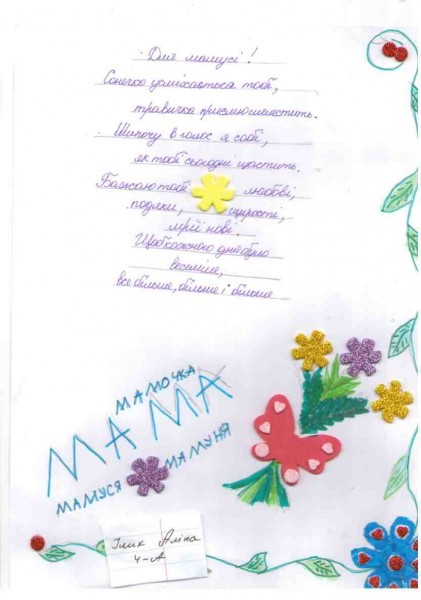 Для мамусі!
Сонечко усміхається тобі,
травичка приємно шелестить.
Шепочу в голос я собі,
як тобі сьогодні щастить.
Бажаю тобі любові,
подяки, щирості,
мрій нові.
Щоб кожного дня було
веселіше,
все більше, більше і більше
МАМОЧКА
МАМА
МАМУСЯ МАМУНЯ
Ілик Аліна
4-А